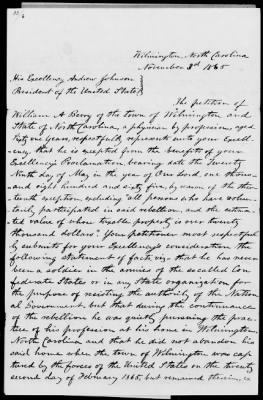 Wilmington, North Carolina
November 3rd 1865
His Excellency Andrew Johnson
President of the United States
The petition of
William A Berry of the town of Wilmington and
State of North Carolina, a physician by profession, aged
Sixty one years, respectfully represents unto your Excell-
ency, that he is excepted from the benefits of your
Excellency's Proclamation bearing date the Twenty
Ninth day of May in the year of Our Lord, one thous-
and eight hundred and sixty five, by reason of the thir-
teenth exception including "all persons who have volun-
tarily participated in said rebellion, and the estima-
ted value of whose taxable property is over twenty
thousand dollars." Your petitioner most respectful-
ly submits for your Excellency's consideration the
following statement of facts, viz: that he has never
been a soldier in the armies of the so called Con-
federate States or in any State organization for
the purpose of resisting the authority of the Nation-
al Government but that during the continuance
of the rebellion he was quietly pursuing the prac-
tice of his profession at his home in Wilmington,
North Carolina and that he did not abandon his
said home when the town of Wilmington was cap-
tured by the forces of the United States on the twenty
second day of February 1865, but remained therein,